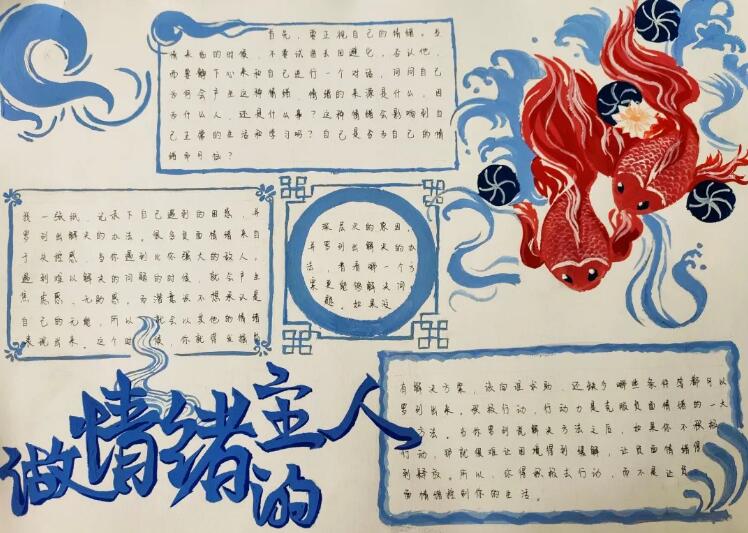 首先，要正视自己的情绪。当
情绪来临的时候，不要试图去回避它，否认他，
而要静下心来和自己进行一个对话，问问自己
为何会产生这种情绪，情绪的来源是什么。因
为什么人，还是什么事？这种情绪会影响到自
己正常的生活和学习吗？自己是否为自己的情
绪而
找一张纸，记录下自己遇到的困惑，并
罗列出解决的办法。很多负面情绪来自
于失控感，当你遇到比你强大的敌人，
遇到难以解决的问题的时候，就会产生
焦虑感、无助感。而潜意识不想承认是
自己的无能，所以就会以其他的情绪
表现出来。这个时候，你就得去挖
深层次的原因，
并罗列出解决的办
法，看看哪一个方
案是能够解决问
题。如果没
有解决方案，该向谁求助，还缺少哪些条件等都可以
罗列出来。积极行动，行动力是克服负面情绪的一大
方法。当你罗列完解决方法之后，如果你不积极
行动，那就很难让困境得到缓解，让负面情绪得
到释放。所以，你得积极去行动，而不是让负
面情绪控制你的生活。
做情绪的主人